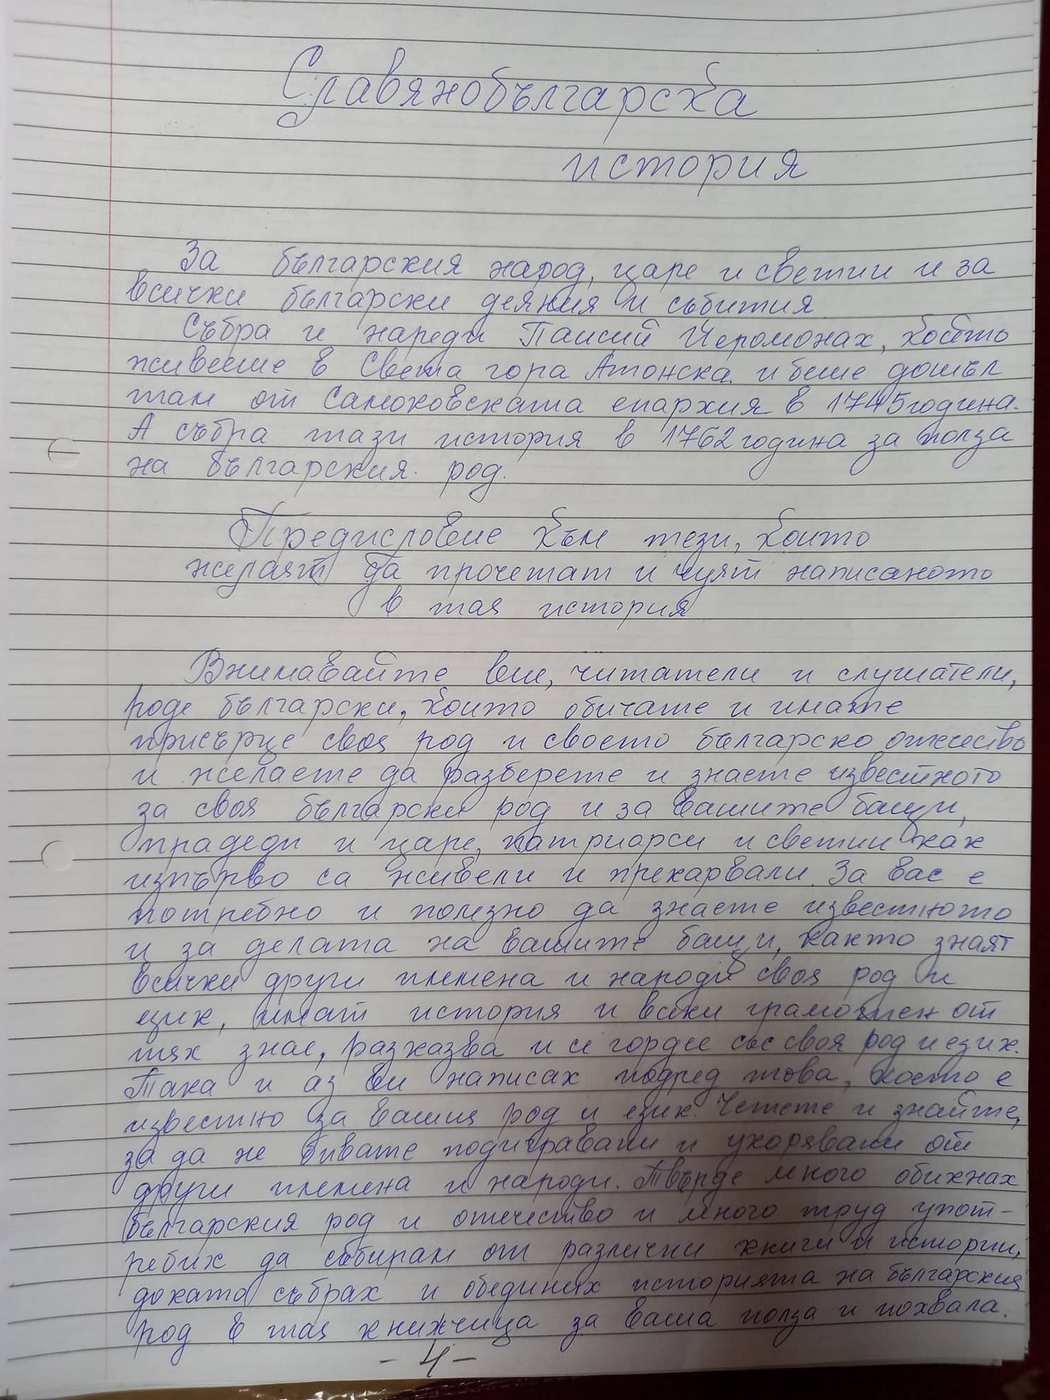 Славянобългарска
история
За българския народ, царе и светии и за
всички български деяния и събития
Събра и нареди Паисий Йеромонах, който
живееше в Света гора Атонска и беше дошъл
там от Самоковската епархия в 1745 година.
А събра тази история в 1762 година за полза
на българския род.
Предисловие към тези, които
желаят да прочетат и чуят написаното
в тая история
Внимавайте вие, читатели и слушатели,
роде български, които обичате и имате
присърце своя род и своето българско отечество
и желаете да разберете и знаете известното
за своя български род и за вашите бащи,
прадеди и царе, патриарси и светии как
изпърво са живели и прекарвали. За вас е
потребно и полезно да знаете известното
и за делата на вашите бащи, както знаят
всички други племена и народи своя род и
език, имат история и всеки грамотен от
тях знае, разказва и се гордее със своя род и език.
Така и аз ви написах подред това, което е
известно за вашия род и език. Четете и знайте,
за да не бивате подигравани и укорявани от
други племена и народи. Твърде много обикнах
българския род и отечество и много труд упот-
ребих да събирам от различни книги и истории,
докато събрах и обединих историята на българския
род в тая книжчица за ваша полза и похвала.
- 4 -